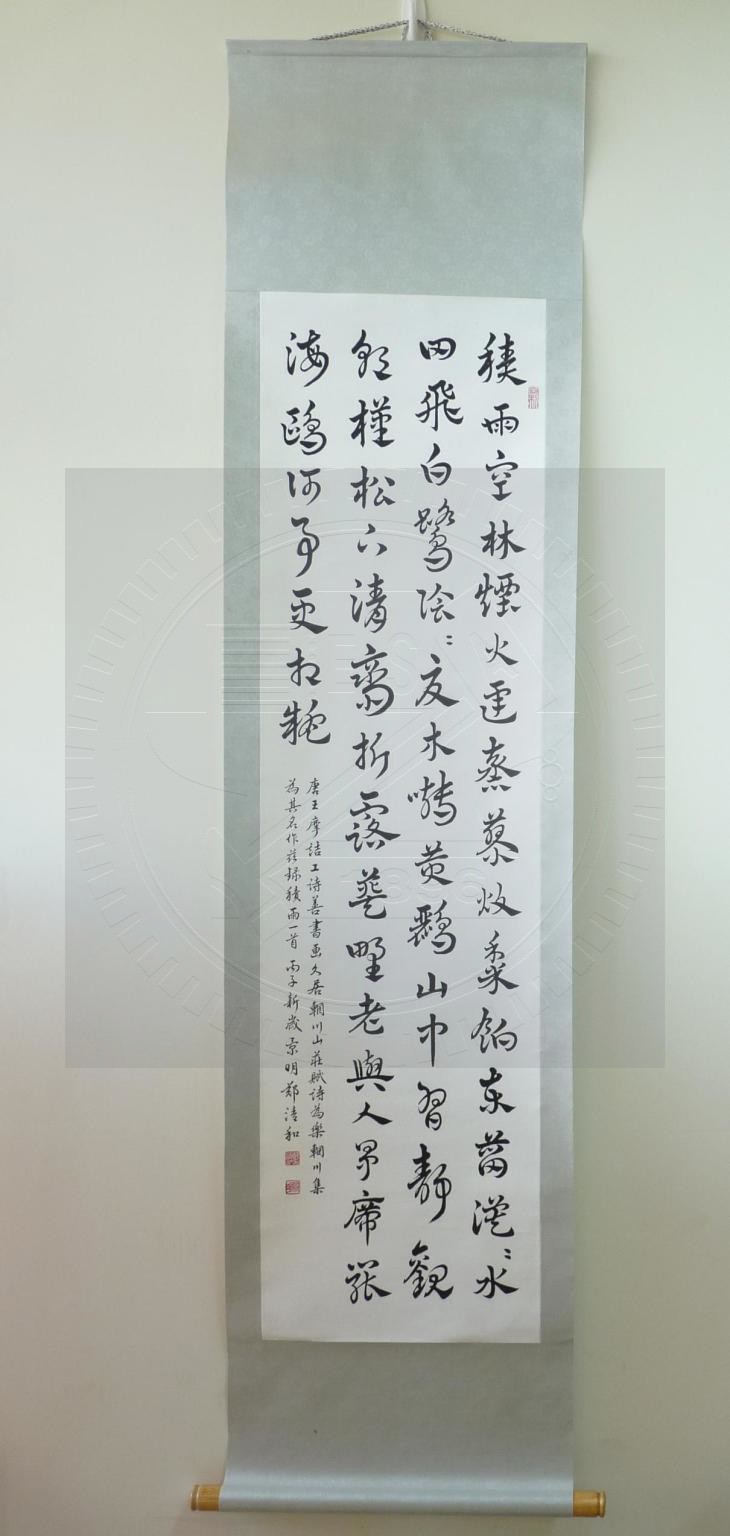 積雨空林煙火遲蒸藜炊黍餉東菑漠〻水
田飛白鷺陰〻夏木囀黃鸝山中習靜觀
朝槿松下清齋折露葵野老與人爭席罷
海鷗何事更相疑
唐王摩詰工詩善書画久居輞川山莊賦詩為樂輞川集
為其名作茲録積雨一首 丙子新歲 景明鄭清和